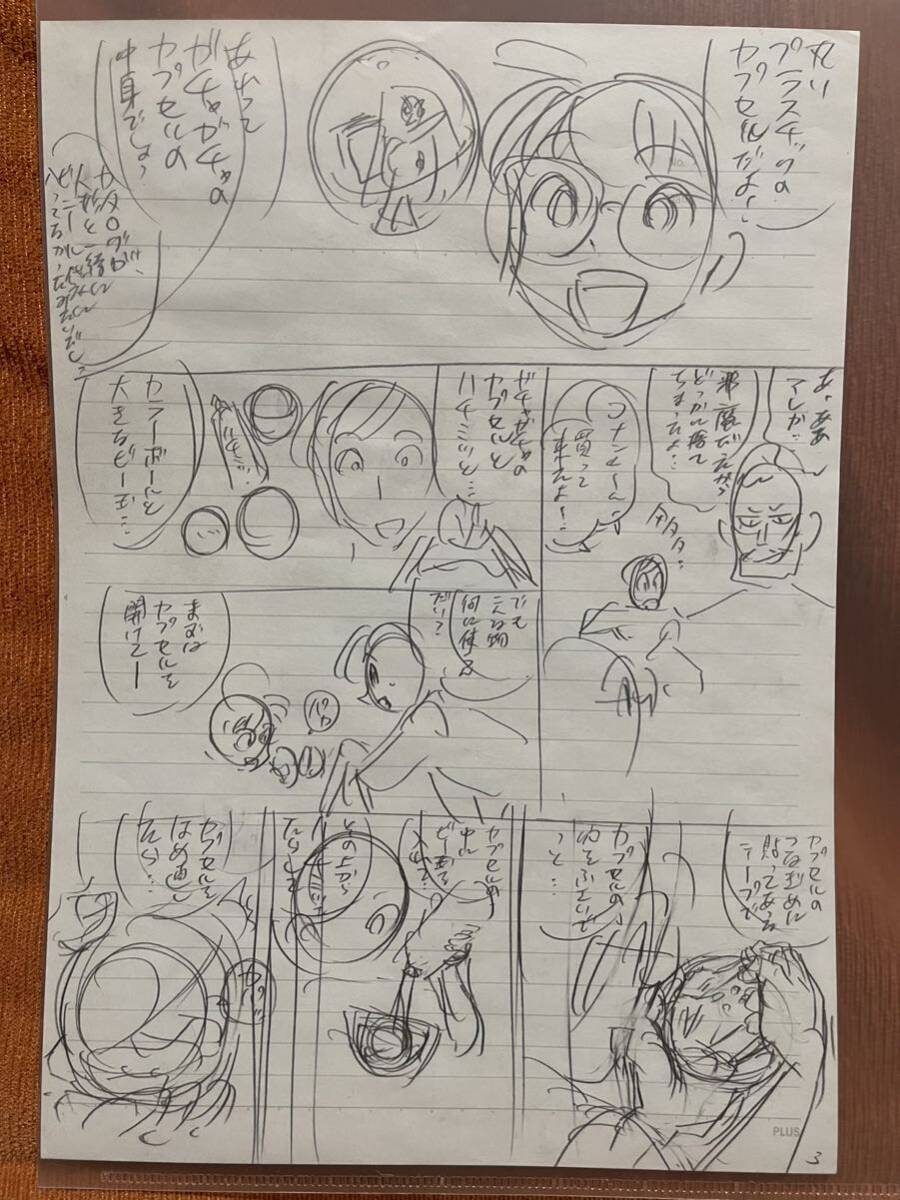 丸い
プラスチックの
カプセルだよ！
あれって
ガチャガチャの
カプセルの
中身でしょ？
カタログが
人形と一緒に
ビニールに
あ、ああ
アレか…
邪魔だから
どっかに捨て
ちまったよ…
コナンくーん
買って
来たよ～
タタタ…
ガチャガチャの
カプセルと
ハチミツと…
ハチミツ
カラーボールと
大きなビー玉…
でも
こんな物
何に使う
だい？
パカ
まずは
カプセルを
開けてー
カプセルの
つなぎ目に
貼ってある
テープで
カプセルの
穴をふさいで
っと…
カプセルの
中に
ビー玉を
入れて…
その上から
ハチミツ
たらして
カプセルを
はめ直し
たら…
カポッ
PLUS
3